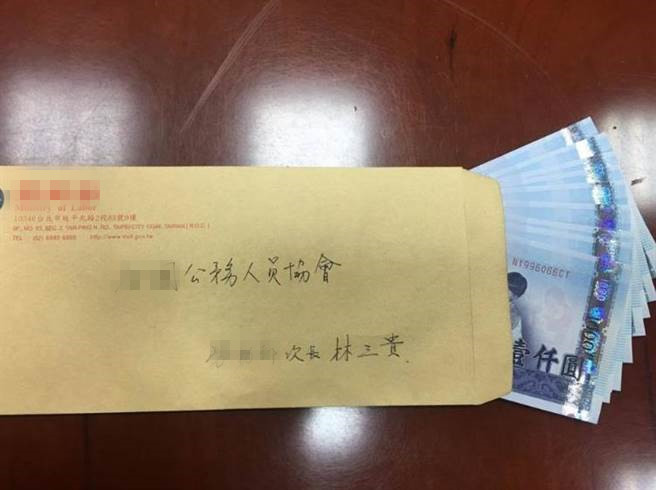 Ministry of Labor
10346台北市延平北路2段83號9樓
9F, NO. 83, SEC. 2, YANPING N. RD., TAIPEI CITY 10346, TAIWAN (R.O.C.)
TEL : (02) http://www.mol.gov.tw
公務人員協會
次長 林三貴
壹仟圓